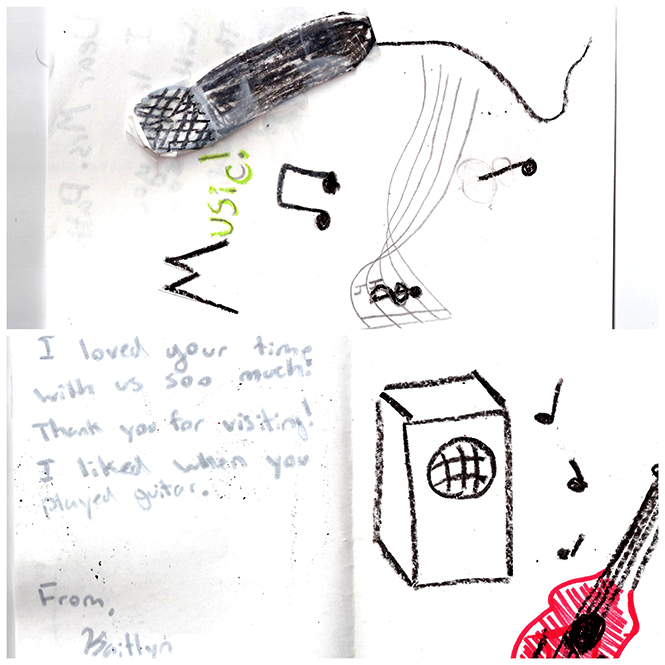 Music!
I loved your time
with us soo much!
Thank you for visiting!
I liked when you
played guitar.
From,
Kaitlyn